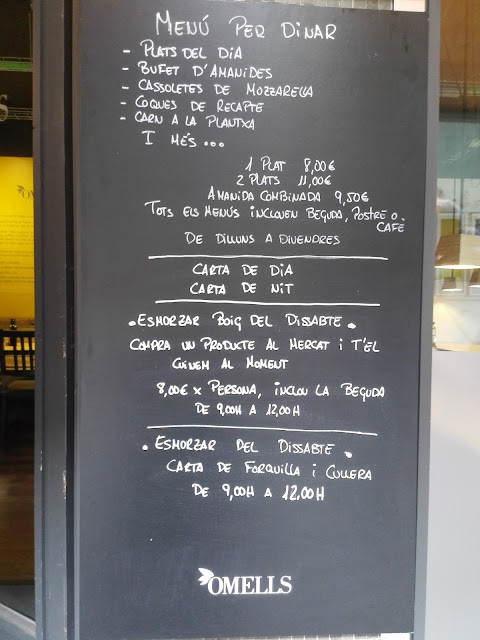 MENÚ PER DINAR
- PLATS DEL DIA
- BUFET D'AMANIDES
- CASSOLETES DE MOZZARELLA
- COQUES DE RECAPTE
- CARN A LA PLANTXA
I MÉS...
1 PLAT 8,00€
2 PLATS 11,00€
AMANIDA COMBINADA 9,50€
TOTS ELS MENÚS INCLOUEN BEGUDA, POSTRE O
CAFÉ
DE DILLUNS A DIVENDRES
CARTA DE DIA
CARTA DE NIT
• ESMORZAR BOIG DEL DISSABTE •
COMPRA UN PRODUCTE AL MERCAT I T'EL
CUINEM AL MOMENT
8,00€ x PERSONA, INCLOU LA BEGUDA
DE 9,00H A 12,00H
• ESMORZAR DEL DISSABTE •
CARTA DE FORQUILLA I CULLERA
DE 9,00H A 12.00H
OMELLS